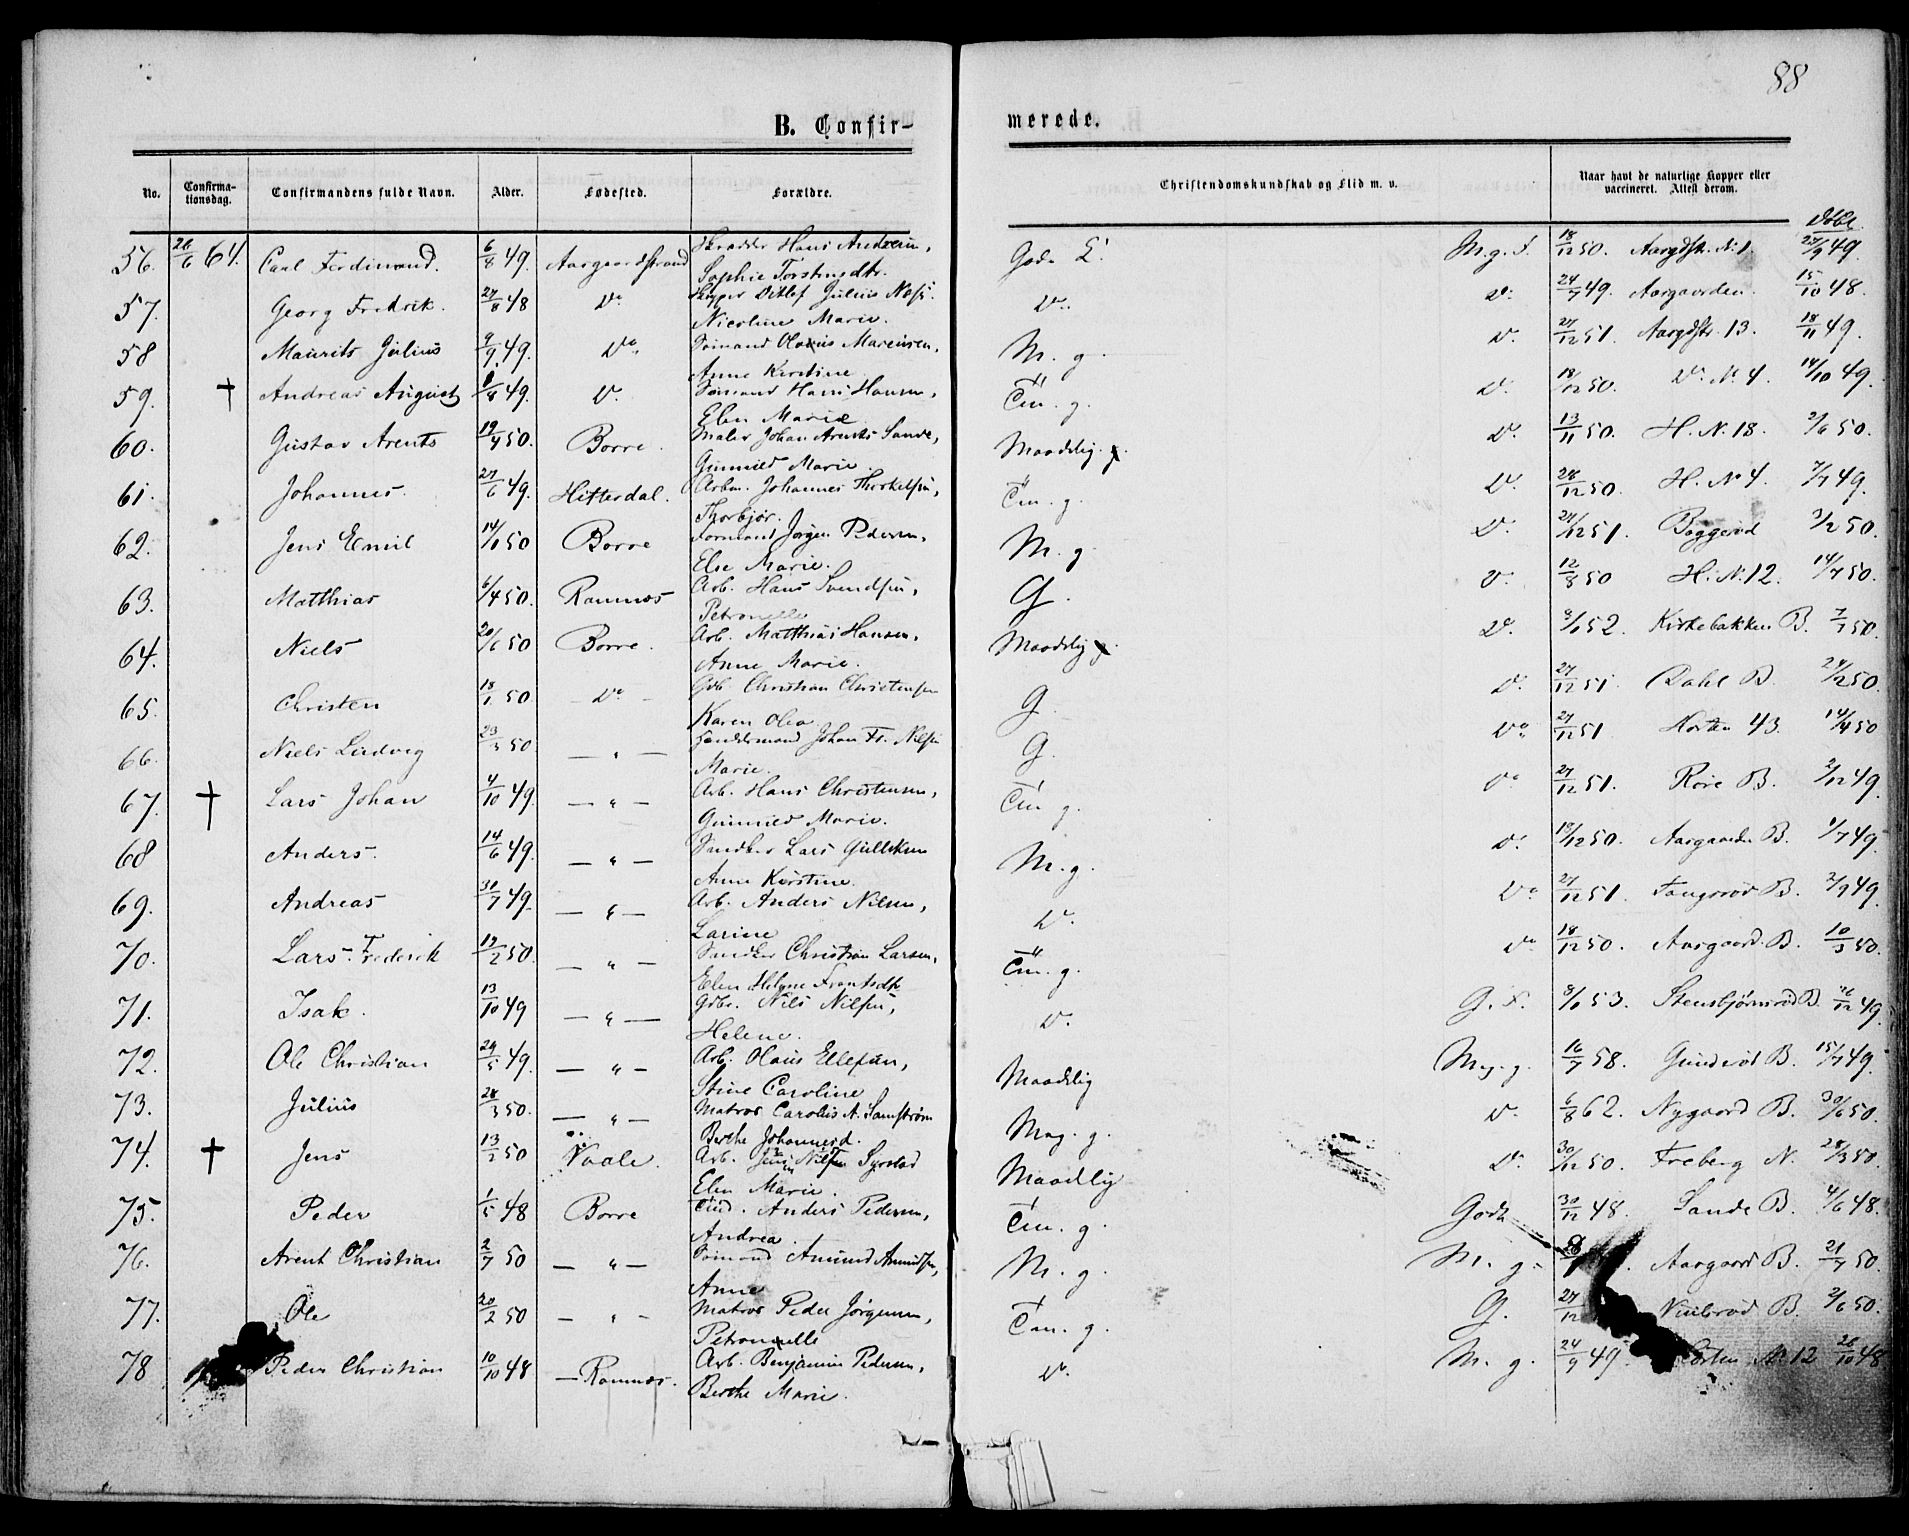 88
B. Confir- merede.
No. Confirma-tionsdag. Confirmandens fulde Navn. Alder. Fødested. Forældre. Christendomskundskab og Flid m. v. Naar havt de naturlige Kopper eller vaccineret. Attest derom.
Døbt
56. 26/6 64. Carl Ferdinand. 6/8 49. Aargaardstrand Skrædder Hans Andersen, Sophie Torstensdtr. Godt M. g. F. 18/12 50. Aargdstr. N. 1. 23/9 49.
57. Georg Fredrik. 27/8 48 Do Skipper Ditlef Julius Nilss. Nicoline Marie. Do. Do. 24/7 49. Aargaarden. 15/10 48.
58 Maurits Julius 9/9 49. Do. Sømand Olavus Marensen, Anne Kirstine. M. g. Do. 27/12 51. Aargdstr. 13. 18/11 49.
59. † Andreas August /8 49. Do. Sømand Hans Hansen, Elen Marie Tm. g. Do. 18/12 50. Do. N. 4. 14/10 49.
60. Gustav Arents 19/4 50. Borre. Maler Johan Arents Sande, Gunnild Marie. Maadelig. Do. 13/11 50. H. N. 18. 2/6 50.
61. Johannes. 27/6 49. Hitterdal. Arbm. Johannes Thorkelsen, Thorbjør. Tm. g. Do. 28/12 50. H. N. 4. 7/7 49.
62. Jens Emil 14/1 50 Borre Jørgen Pedersen, Else Marie. M. g. Do. 27/12 51. Bøggerød 3/2 50.
63. Matthias 6/4 50. Ramnes Arb. Hans Svendsen, Petronelle G. Do. 12/8 50 H. N. 12. 14/7 50.
64. Niels 20/6 50 Borre. Arb. Matthias Hansen, Anne Marie. Maadelig Do. 52. Kirkebakken B. 7/7 50.
65. Christen 18/1 50 Do Gdb. Christian Christensen Karen Olea. G. Do. 27/12 51. Dahl B. 24/2 50.
66. Niels Ludvig 23/3 50. — " — Johan Fr. Nilsen Marie. G. Do. 27/12 51. Horten 43. 14/4 50
67. † Lars Johan 4/10 49. — " — Arb. Hans Christensen, Gunnild Marie. Tm g. Do 27/12 51. Røre B. 2/12 49.
68 Anders. 14/6 49. — " — Lars Gulliksen Anne Kirstine. M. g. Do. 18/12 50. Aargaarden B. 1/7 49.
69. Andreas 31/7 49. — " — Arb. Anders Nilsen, Larine Do. Do 27/12 51. Fangsrød B. 2/9 49.
70. Lars Frederik 19/2 50. — " — Christian Larsen, Elen Helene Frantsdtr. Tm. g. Do 18/12 50. Aargaard. B. 10/3 50.
71. Isak. 13/10 49 — " — Gdbr. Nils Nilsen, Helene. Do. G. F. 8/1 53. Stensbjørnsrød B. 26/12 49.
72. Ole Christian 29/5 49. — " — Arb. Olaus Ellefsen, Stine Caroline Maadelig Meg. g. 16/7 58. Gunnerød B. 15/7 49.
73. Julius 28/3 50. — " — Matros Carolus A. Samstrøm Berthe Johannesd. Meg. g. Do. 6/8 62. Nygaard B. 30/6 50.
74. † Jens 13/2 50 Vaale. Arb. Jens Nilsen Syrstad Elen Marie. Maadelig Do. 30/12 50. Freberg N. 28/3 50.
75. Peder 1/5 48 Borre Anders Pedersen, Andrea. Tm. g. Godt 30/12 48. Sande B. 4/6 48.
76. Arent Christian 2/7 50 — " — Sømand Amund Amundsen, Anne M. g. M. g. Aargaard B. 21/7 50.
77. Ole 20/2 50 — " — Matros Peder Jørgensen, Petronelle Tm. g. G. 27/12 B. 2/6 50.
78 Peder Christian 10/10 48 — Ramnes. Arb. Benjamin Pedersen, Berthe Marie. Do. M. g. 24/9 49. Horten N. 12 26/10 48